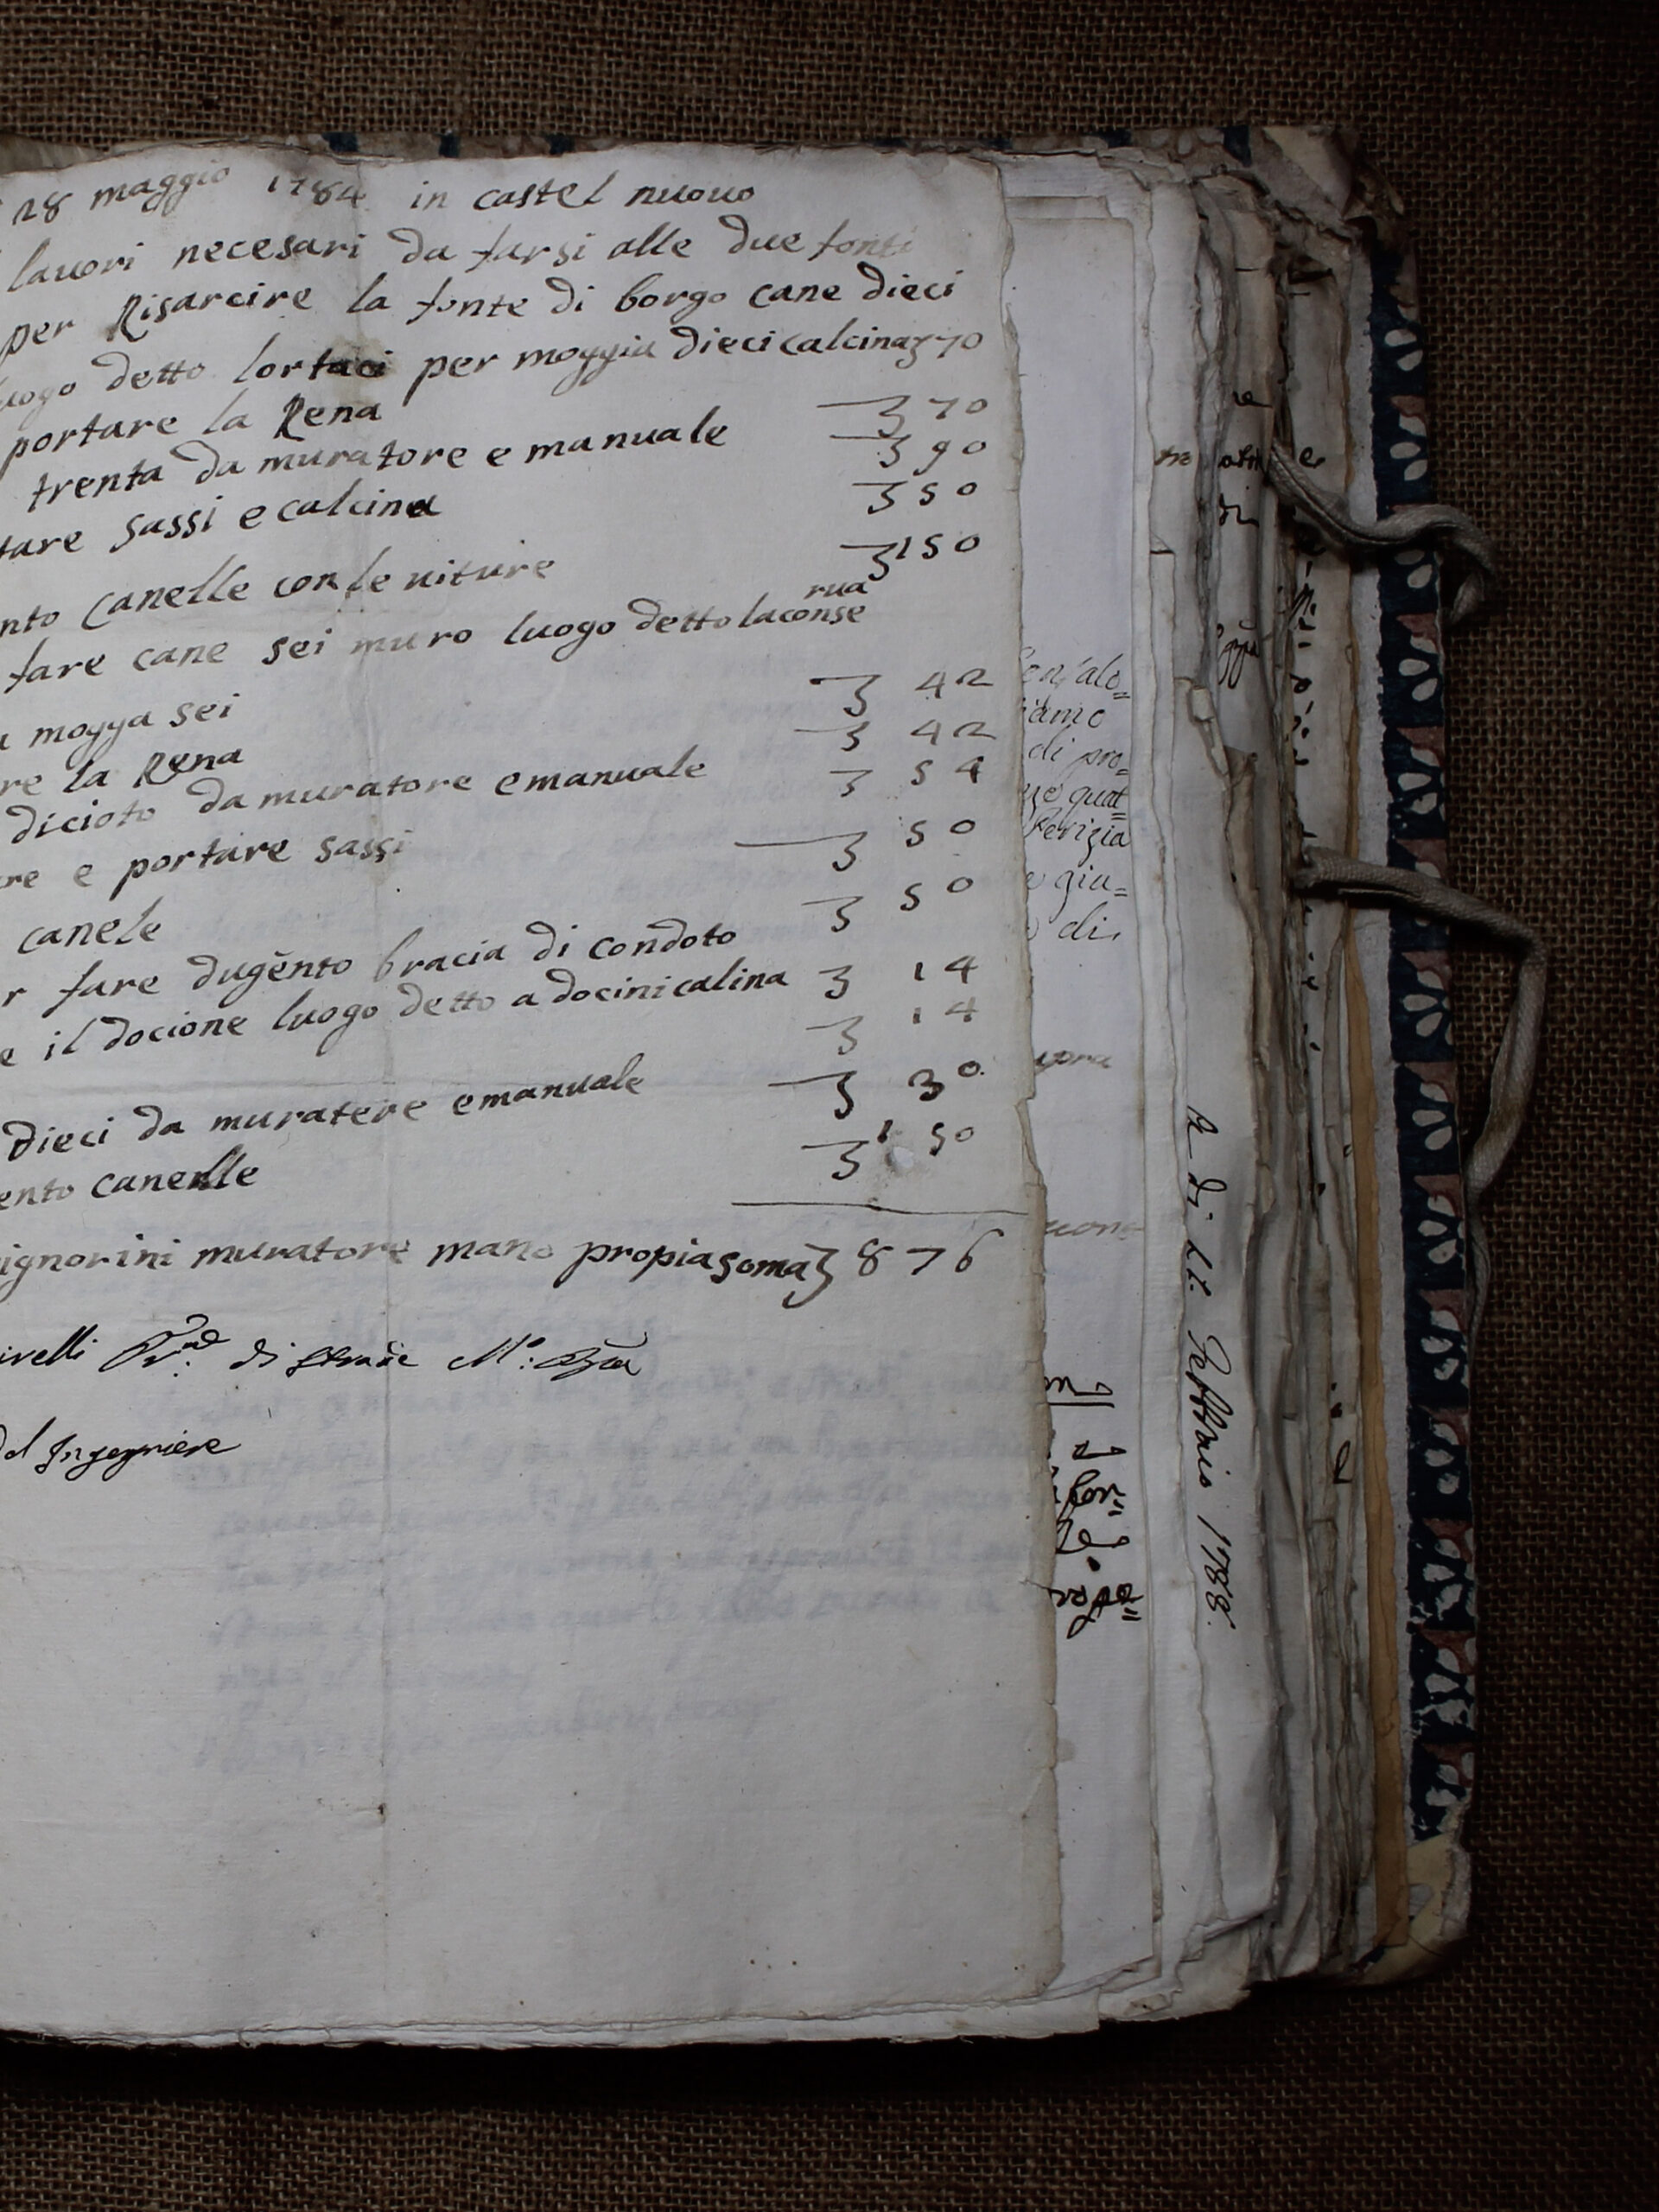 28 maggio 1784 in castel nuouo
lauori necesari da farsi alle due fonti
per Risarcire la fonte di borgo cane dieci
luogo detto lortaci per moggia dieci calcina ʒ 70
portare la Rena ʒ 70
trenta da muratore e manuale ʒ 90
tare sassi e calcina ʒ 50
nto canelle con le uiture ʒ 150
fare cane sei muro luogo detto laconse
rua
a mogga sei ʒ 42
re la Rena ʒ 42
dicioto da muratore e manuale ʒ 54
re e portare sassi ʒ 50
canele ʒ 50
r fare dugēnto bracia di condoto
e il docione luogo detto a docini calina ʒ 14
ʒ 14
dieci da muratere e manuale ʒ 30
ento canelle ʒ 150
ignorini muratore mano propia soma ʒ 876
ivelli di strade M:
d Ingegniere
di pro=
quat=
Perizia
e giu=
di
A di 12: Febbraio 1788.